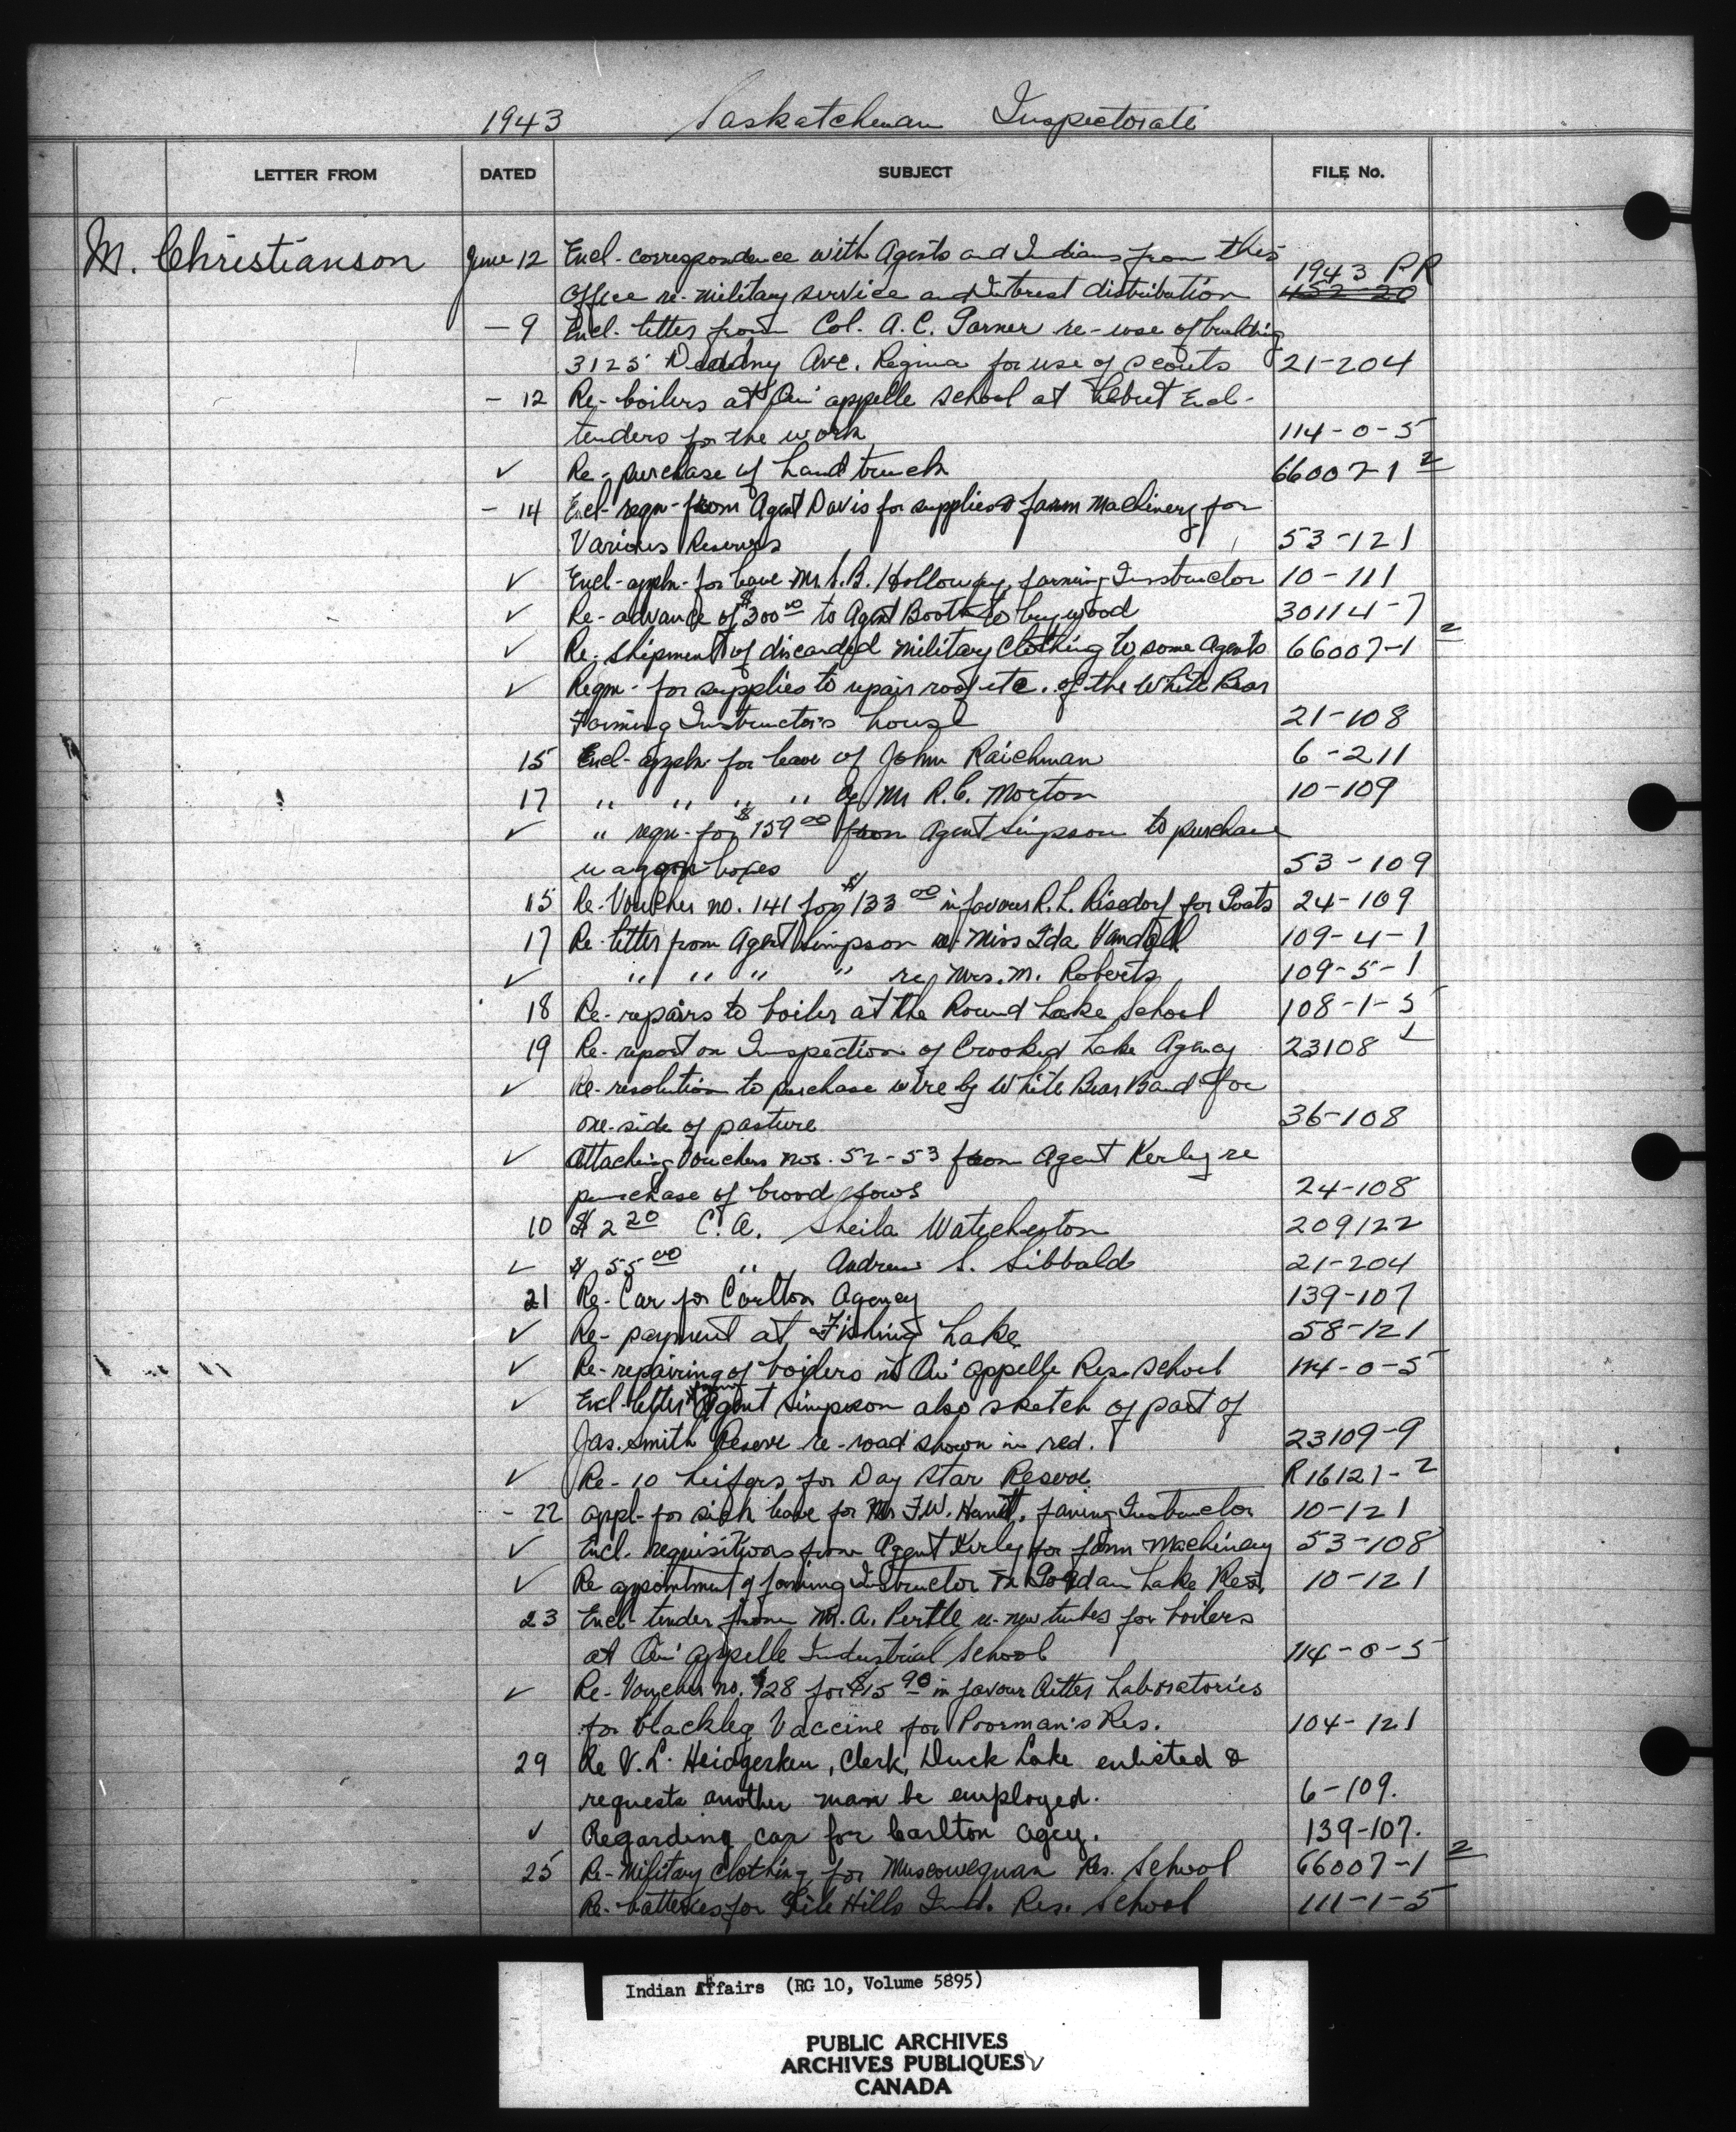 1943 Saskatchewan Inspectorate
LETTER FROM DATED SUBJECT FILE No.
M. Christianson June 12 Encl- correspondence with Agents and Indians from this
Office re- military service and Interest distribution 1943 PR 452-20
- 9 Encl- letter from Col. A. C. Garner re-use of building
3125 Dewdny Ave. Regina for use of scouts 21-204
- 12 Re- boilers at Qu'appelle School at Lebret Encl-
tenders for the work 114-0-5
✓ Re- purchase of hand truck 66007-1 2
- 14 Encl- reqn- from Agent Davis for supplies & farm Machinery for
Various Reserves 53-121
✓ Encl- appln- for leave Mr. S. B. Holloway, farming Instructor 10-111
✓ Re- advance of $300 00 to Agent Booth to buy wood 30114-7
✓ Re. shipment of discarded military Clothing to some Agents 66007-1 2
✓ Reqn- for supplies to repair roof etc. of the White Bear
Farming Instructor's house 21-108
15 Encl- appln- for leave of John Raichman 6-211
17 " " " " of Mr R. C. Morton 10-109
✓ " reqn- for $159 00 from Agent Simpson to purchase
waggon boxes 53-109
15 Re- Voucher no. 141 for $133 00 in favour R. L. Risdorf for Goats 24-109
17 Re- letter from Agent Simpson re- Miss Ida Vandall 109-4-1
✓ " " " " re Mrs. M. Roberts 109-5-1
18 Re- repairs to boiler at the Round Lake School 108-1-5
19 Re- report on Inspection of Crooked Lake Agency 23108
✓ Re- resolution to purchase wire by White Bear Band for
one-side of pasture 36-108
✓ Attaching Vouchers nos. 52-53 from Agent Kerley re
purchase of brood sows 24-108
10 $2 20 C. A. Sheila Watcheston 209122
✓ $55 00 " Andrew S. Sibbald 21-204
21 Re- Car for Carlton Agency 139-107
✓ Re- payment at Fishing Lake 58-121
✓ Re- repairing of boilers in Qu'appelle Res. School 114-0-5
✓ Encl- letter from Agent Simpson also sketch of part of
Jas. Smith Reserve re-road shown in red. 23109-9
✓ Re- 10 heifers for Day Star Reserve. R16121-2
- 22 appl- for sick leave for Mr F.W. Hunt, farming Instructor 10-121
✓ Encl. requisitions from Agent Kerley for farm Machinery 53-108
✓ Re appointment of farming Instructor to Gordan Lake Res. 10-121
23 Encl- tender from Mr. A. Pertle re- new tubes for boilers
at Qu'appelle Industrial School 114-0-5
✓ Re- Voucher no. 928 for $15 90 in favour Aitter Laboratories
for blackleg Vaccine for Poorman's Res. 104-121
29 Re V. L. Heidgerken, Clerk, Duck Lake enlisted &
requests another man be employed. 6-109.
✓ Regarding car for Carlton agcy. 139-107.
25 Re- Military Clothing for Muscowequan Res. School 66007-1 2
Re- batteries for File Hills Ind. Res. School 111-1-5
Indian Affairs (RG 10, Volume 5895)
PUBLIC ARCHIVES
ARCHIVES PUBLIQUES
CANADA